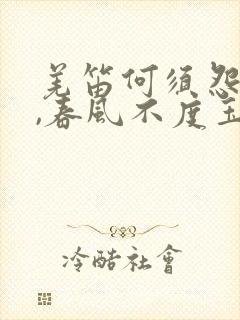 羌笛何須怨
,春風不度玉
冷酷社會